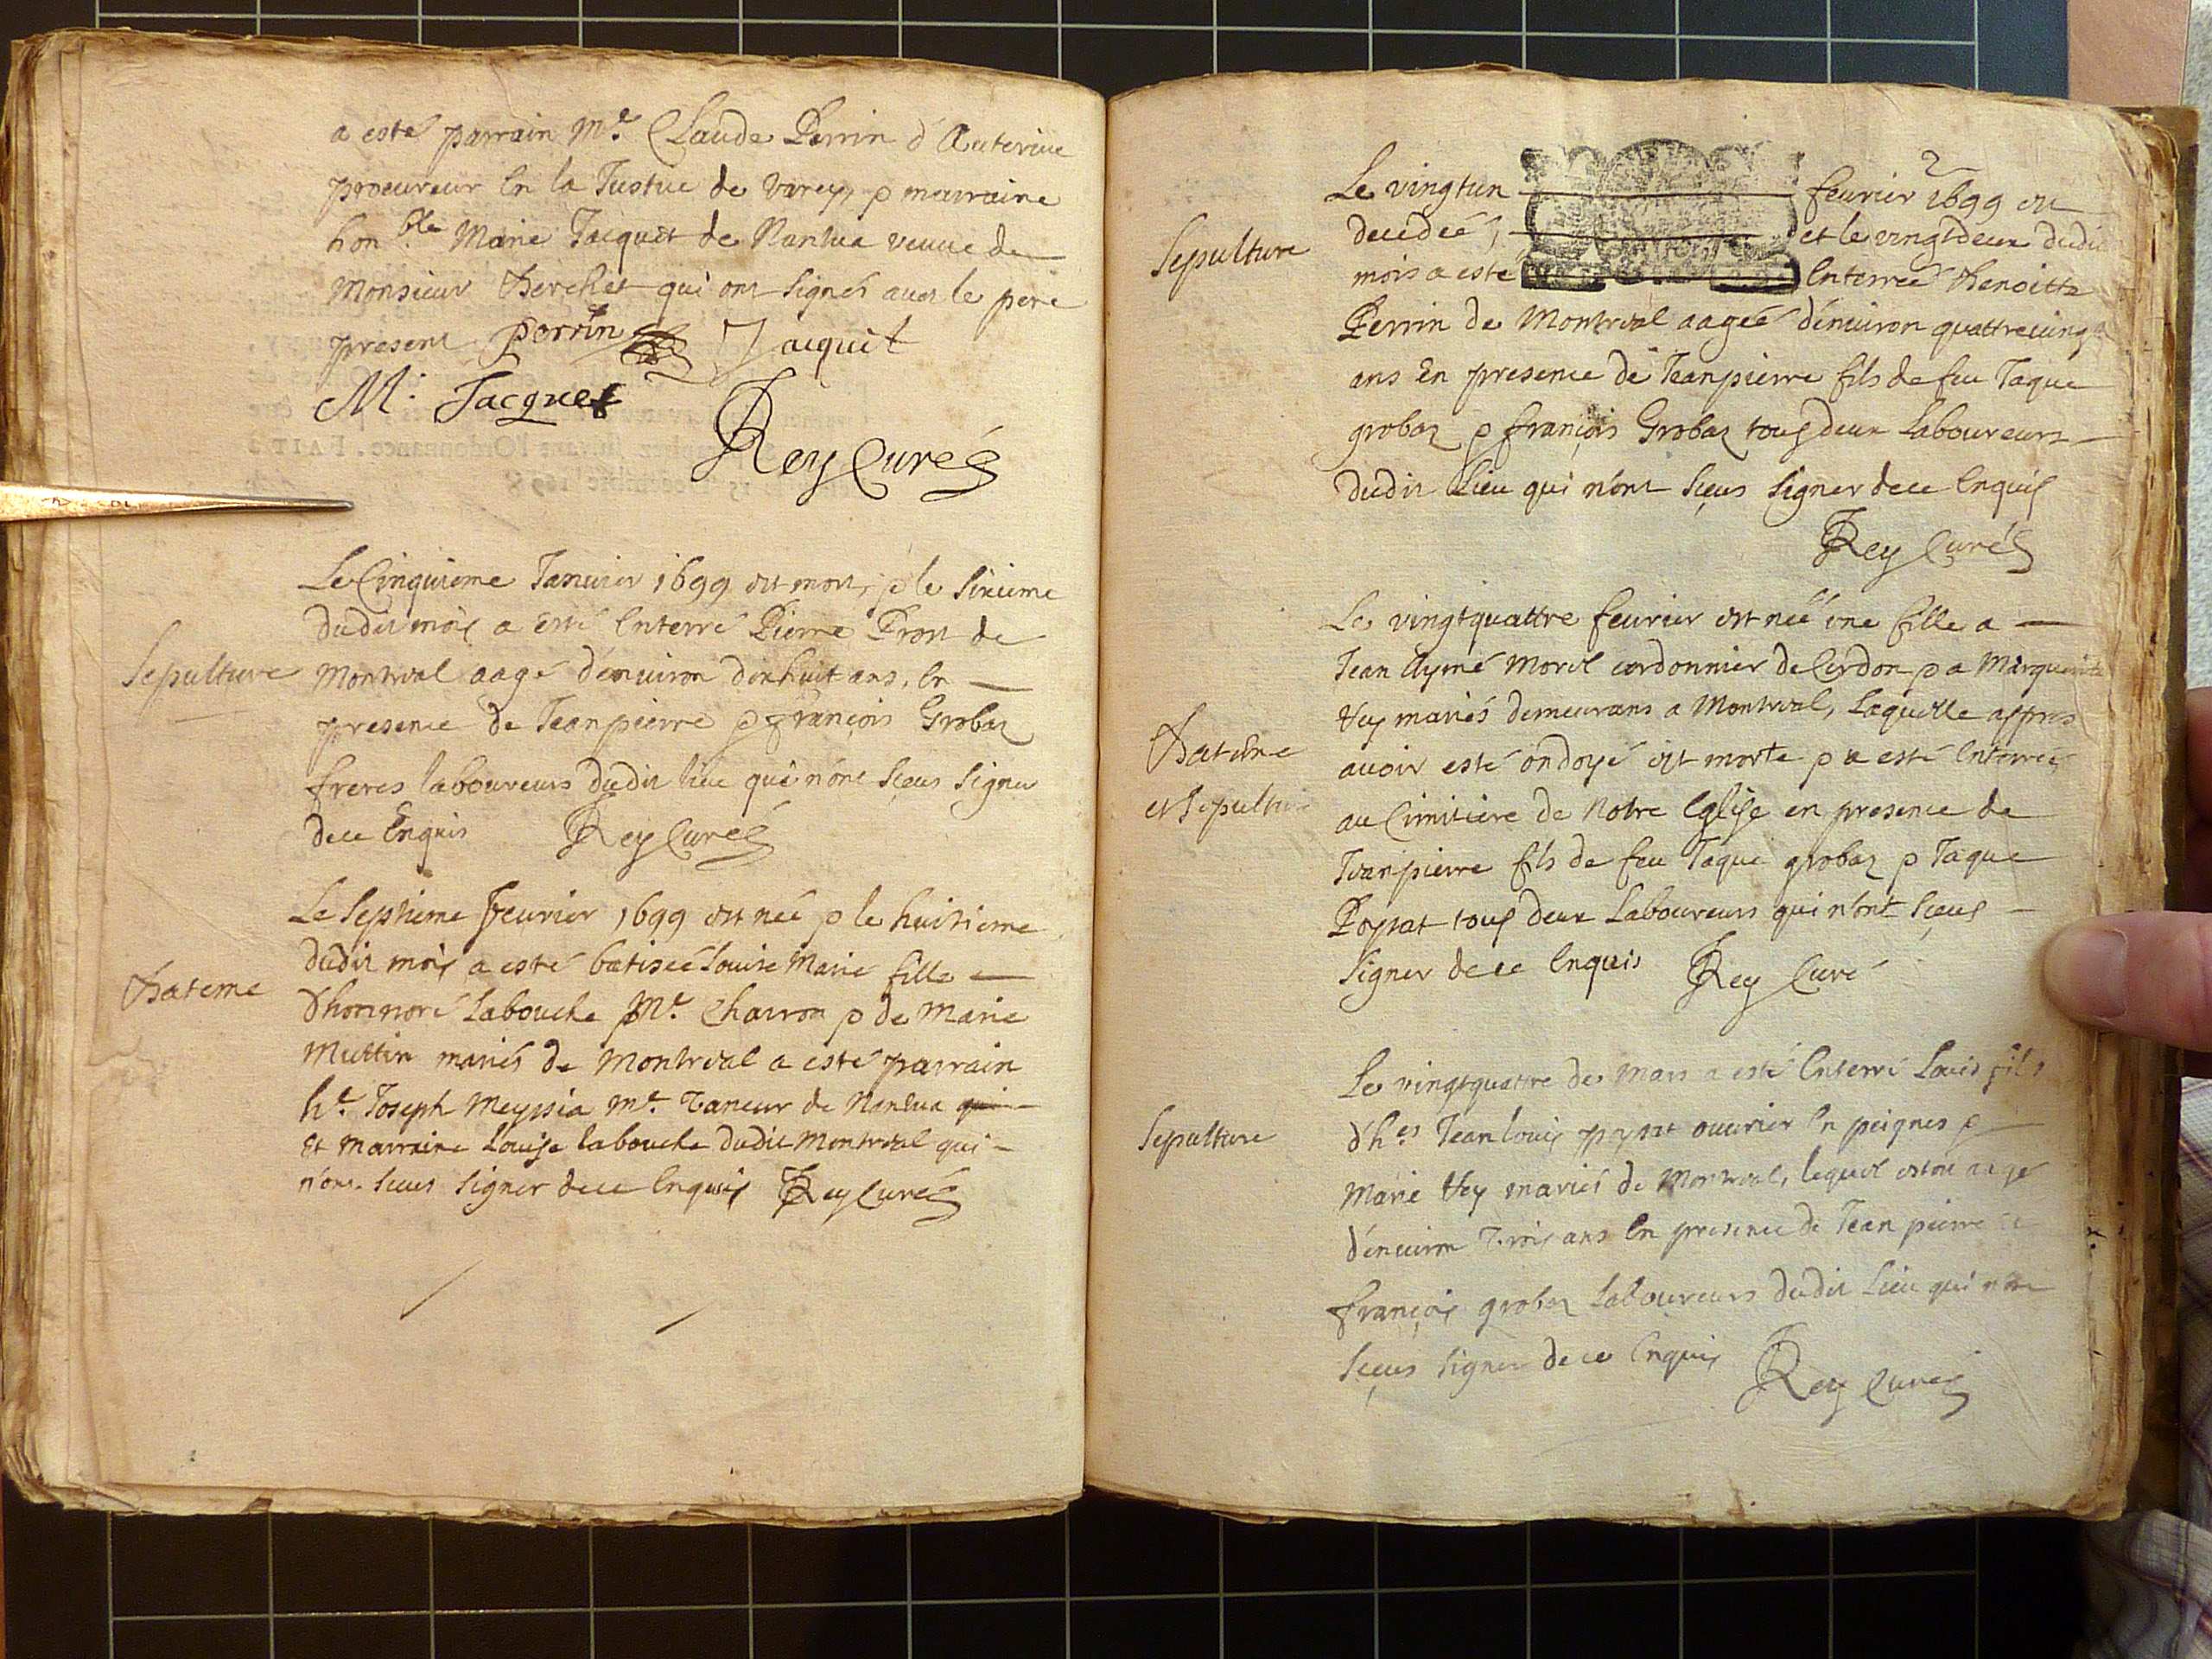 a esté parrain Mr. Claude Perrin d'Auterive
procureur en la Justice de Varey, & marraine
hon.ble Marie Jacquet de Nantua veuve de
Monsieur Berchet qui ont signés avec le pere
present Perrin Jacquet
M. Jacquet
Rey Curé
Sepulture
Le Cinquieme Janvier 1699 est mort, & le sixieme
dudit mois a esté enterré Pierre Pron de
Montreal aagé d'environ dixhuit ans, en
presence de Jeanpierre & françois Grobaz
freres laboureurs dudit lieu qui n'ont sçeus signer
de ce enquis Rey Curé
Bateme
Le Septieme fevrier 1699 est neé & le huitieme
dudit mois a esté batiseé Louise Marie fille
d'honnoré Labouche Mr. Charron & de Marie
Muttin mariés de Montreal a esté parrain
hr. Joseph Meyssia Mr. Taneur de Nantua qui
Et marraine Louise labouche dudit Montreal qui
n'ont sceus signer de ce enquis Rey Curé
2
Sepulture
Le vingtun fevrier 1699 est
decedeé, et le vingtdeux dudit
mois a esté enterreé Benoitte
Perrin de Montreal aageé d'environ quattrevingt
ans en presence de Jeanpierre fils de feu Jaque
grobaz & françois Grobaz tous deux Laboureurs
dudit Lieu qui n'ont sçeus signer de ce enquis
Rey Curé
Bateme
et Sepulture
Le vingtquattre fevrier est neé une fille a
Jean Aymé Morel cordonnier de Cerdon & a Marguerite
Hey mariés demeurans a Montreal, Laquelle appres
avoir esté ondoyé est morte & a esté enterreé
au Cimitiere de Notre Eglise en presence de
Jeanpierre fils de feu Jaque grobaz & Jaque
Poysat tous deux Laboureurs qui n'ont sçeus
signer de ce enquis Rey Curé
Sepulture
Le vingtquattre de Mars a esté enterré Louis fils
d'h.es Jean louis poysat ouvrier en peignes &
Marie Hey mariés de Montreal, lequel estoit aagé
d'environ Trois ans en presence de Jean pierre et
françois grobaz Laboureurs dudit Lieu qui n'ont
sçeus signer de ce enquis
Rey Curé